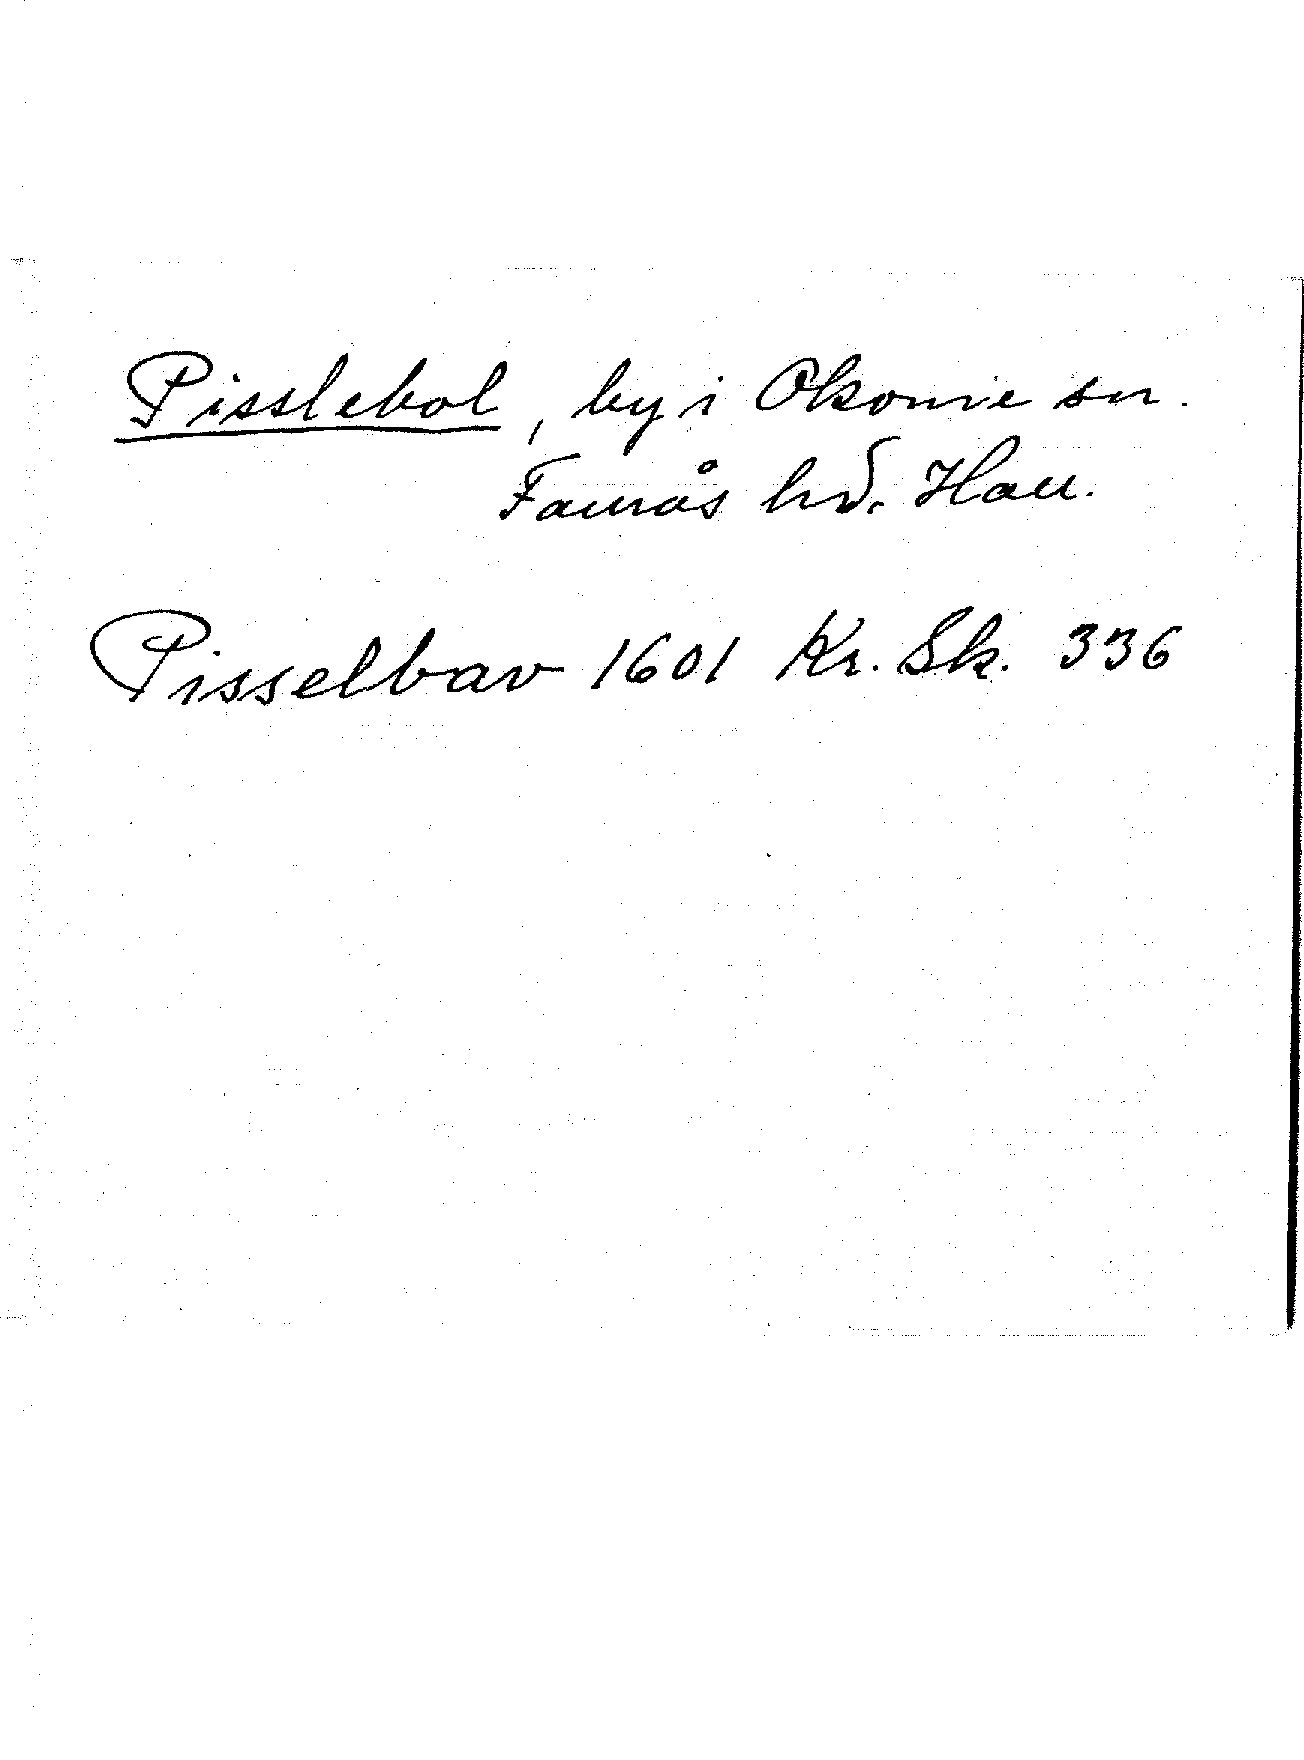 Pisslebol, by i Okome sn.
Faurås hd. Hall.
Pisselbav 1601 Kr. Sk. 336